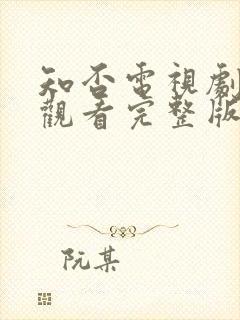 知否電視劇
觀看完整版
阮某